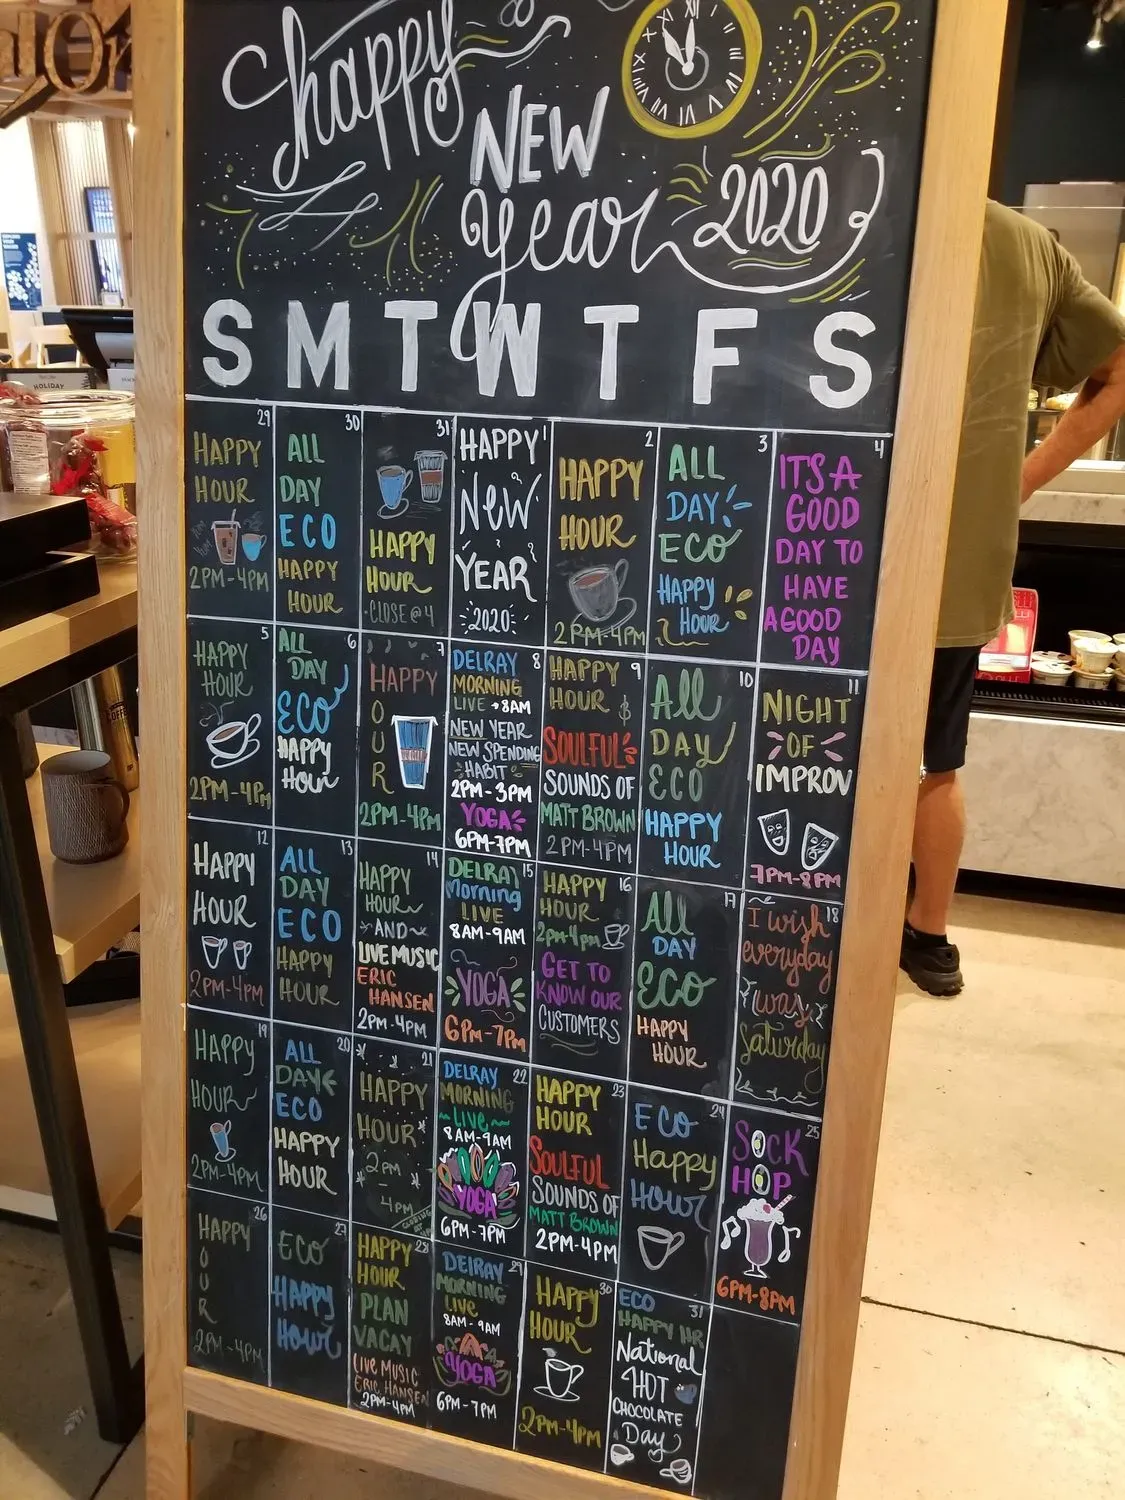 Happy
NEW
Year 2020
S M T W T F S
29
HAPPY
HOUR
2PM-4PM
30
ALL
DAY
ECO
HAPPY
HOUR
31
HAPPY
HOUR
·CLOSE@4
1
HAPPY
NEW
YEAR
2020
2
HAPPY
HOUR
2PM-4PM
3
ALL
DAY
ECO
HAPPY
HOUR
4
ITS A
GOOD
DAY TO
HAVE
A GOOD
DAY
5
HAPPY
HOUR
2PM-4PM
6
ALL
DAY
ECO
HAPPY
HOUR
7
HAPPY
O
U
R
2PM-4PM
8
DELRAY
MORNING
LIVE 8AM
NEW YEAR
NEW SPENDING
HABIT
2PM-3PM
YOGA
6PM-7PM
9
HAPPY
HOUR
SOULFUL
SOUNDS OF
MATT BROWN
2PM-4PM
10
All
DAY
ECO
HAPPY
HOUR
11
NIGHT
OF
IMPROV
7PM-8PM
12
HAPPY
HOUR
2PM-4PM
13
ALL
DAY
ECO
HAPPY
HOUR
14
HAPPY
HOUR
~AND~
LIVE MUSIC
ERIC
HANSEN
2PM-4PM
15
DELRAY
Morning
LIVE
8AM-9AM
YOGA
6PM-7PM
16
HAPPY
HOUR
2PM-4PM
GET TO
KNOW OUR
CUSTOMERS
17
All
DAY
ECO
HAPPY
HOUR
18
I wish
everyday
was
Saturday
19
HAPPY
HOUR
2PM-4PM
20
ALL
DAY
ECO
HAPPY
HOUR
21
HAPPY
HOUR
2PM
4PM
22
DELRAY
MORNING
~Live~
8AM-9AM
YOGA
6PM-7PM
23
HAPPY
HOUR
SOULFUL
SOUNDS OF
MATT BROWN
2PM-4PM
24
ECO
Happy
HOUR
25
SOCK
HOP
6PM-8AM
26
HAPPY
O
U
R
2PM-4PM
27
ECO
HAPPY
HOUR
28
HAPPY
HOUR
PLAN
VACAY
LIVE MUSIC
ERIC HANSEN
2PM-4PM
29
DELRAY
MORNING
LIVE
8AM-9AM
YOGA
6PM-7PM
30
HAPPY
HOUR
2PM-4PM
31
ECO
HAPPY HR
National
HOT
CHOCOLATE
Day
HOLIDAY